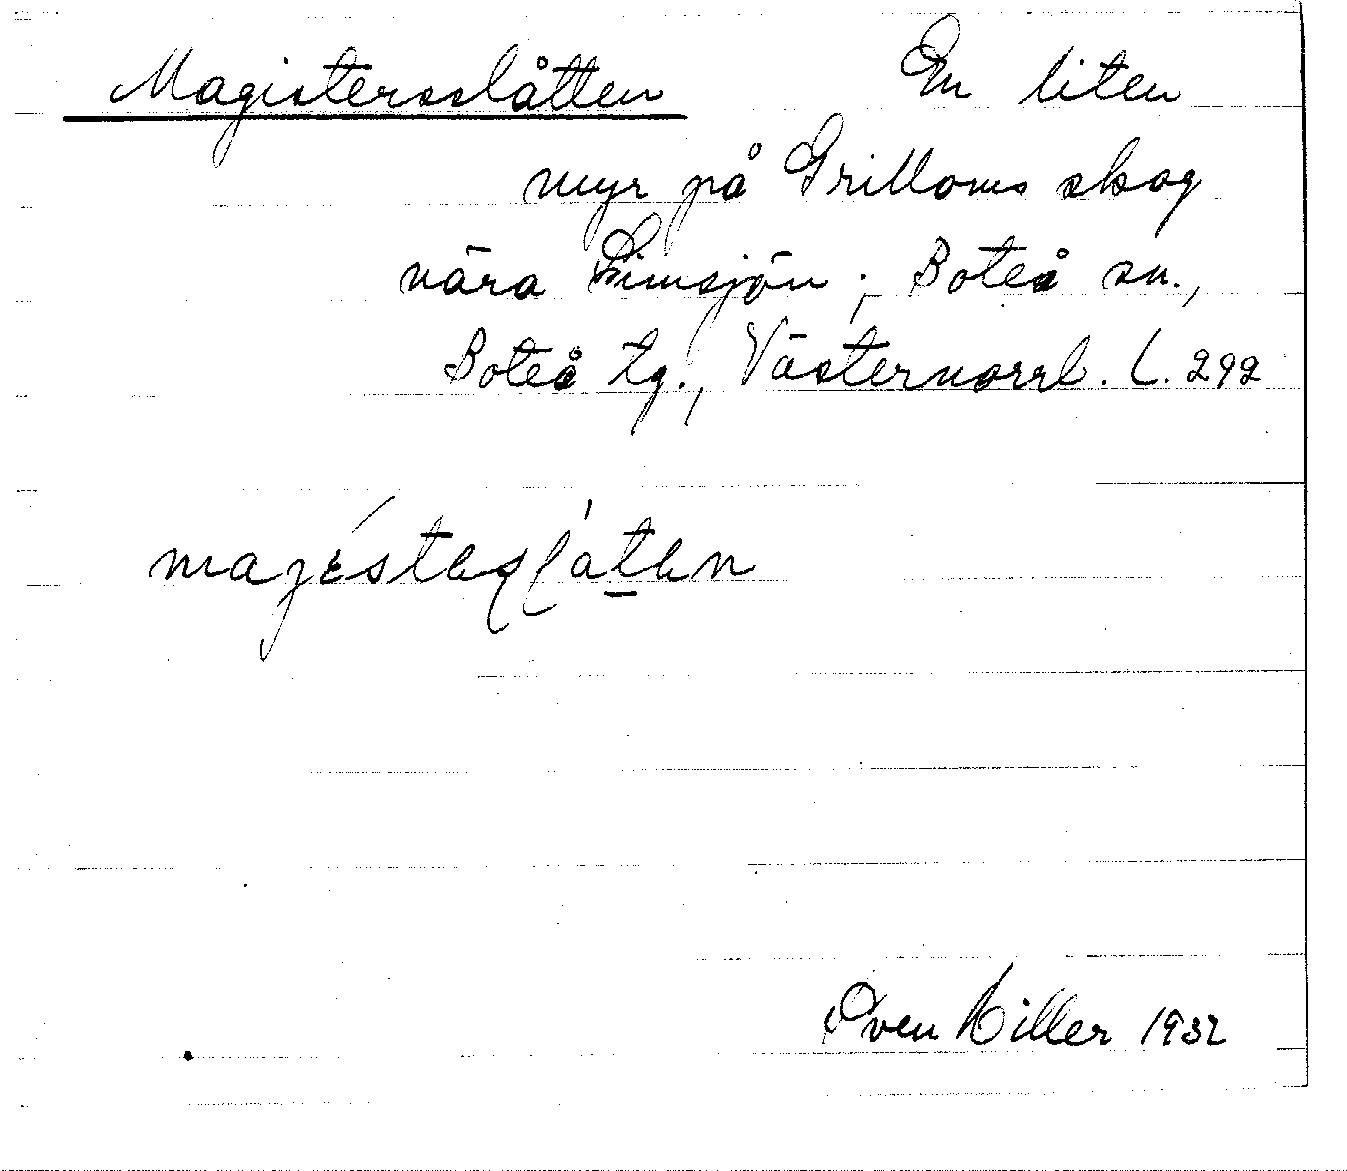 Magistersslåtten En liten
myr på Grilloms skog
nära Simsjön; Boteå sn.,
Boteå tg., Västernorrl. L. 292
Sven Hiller 1932